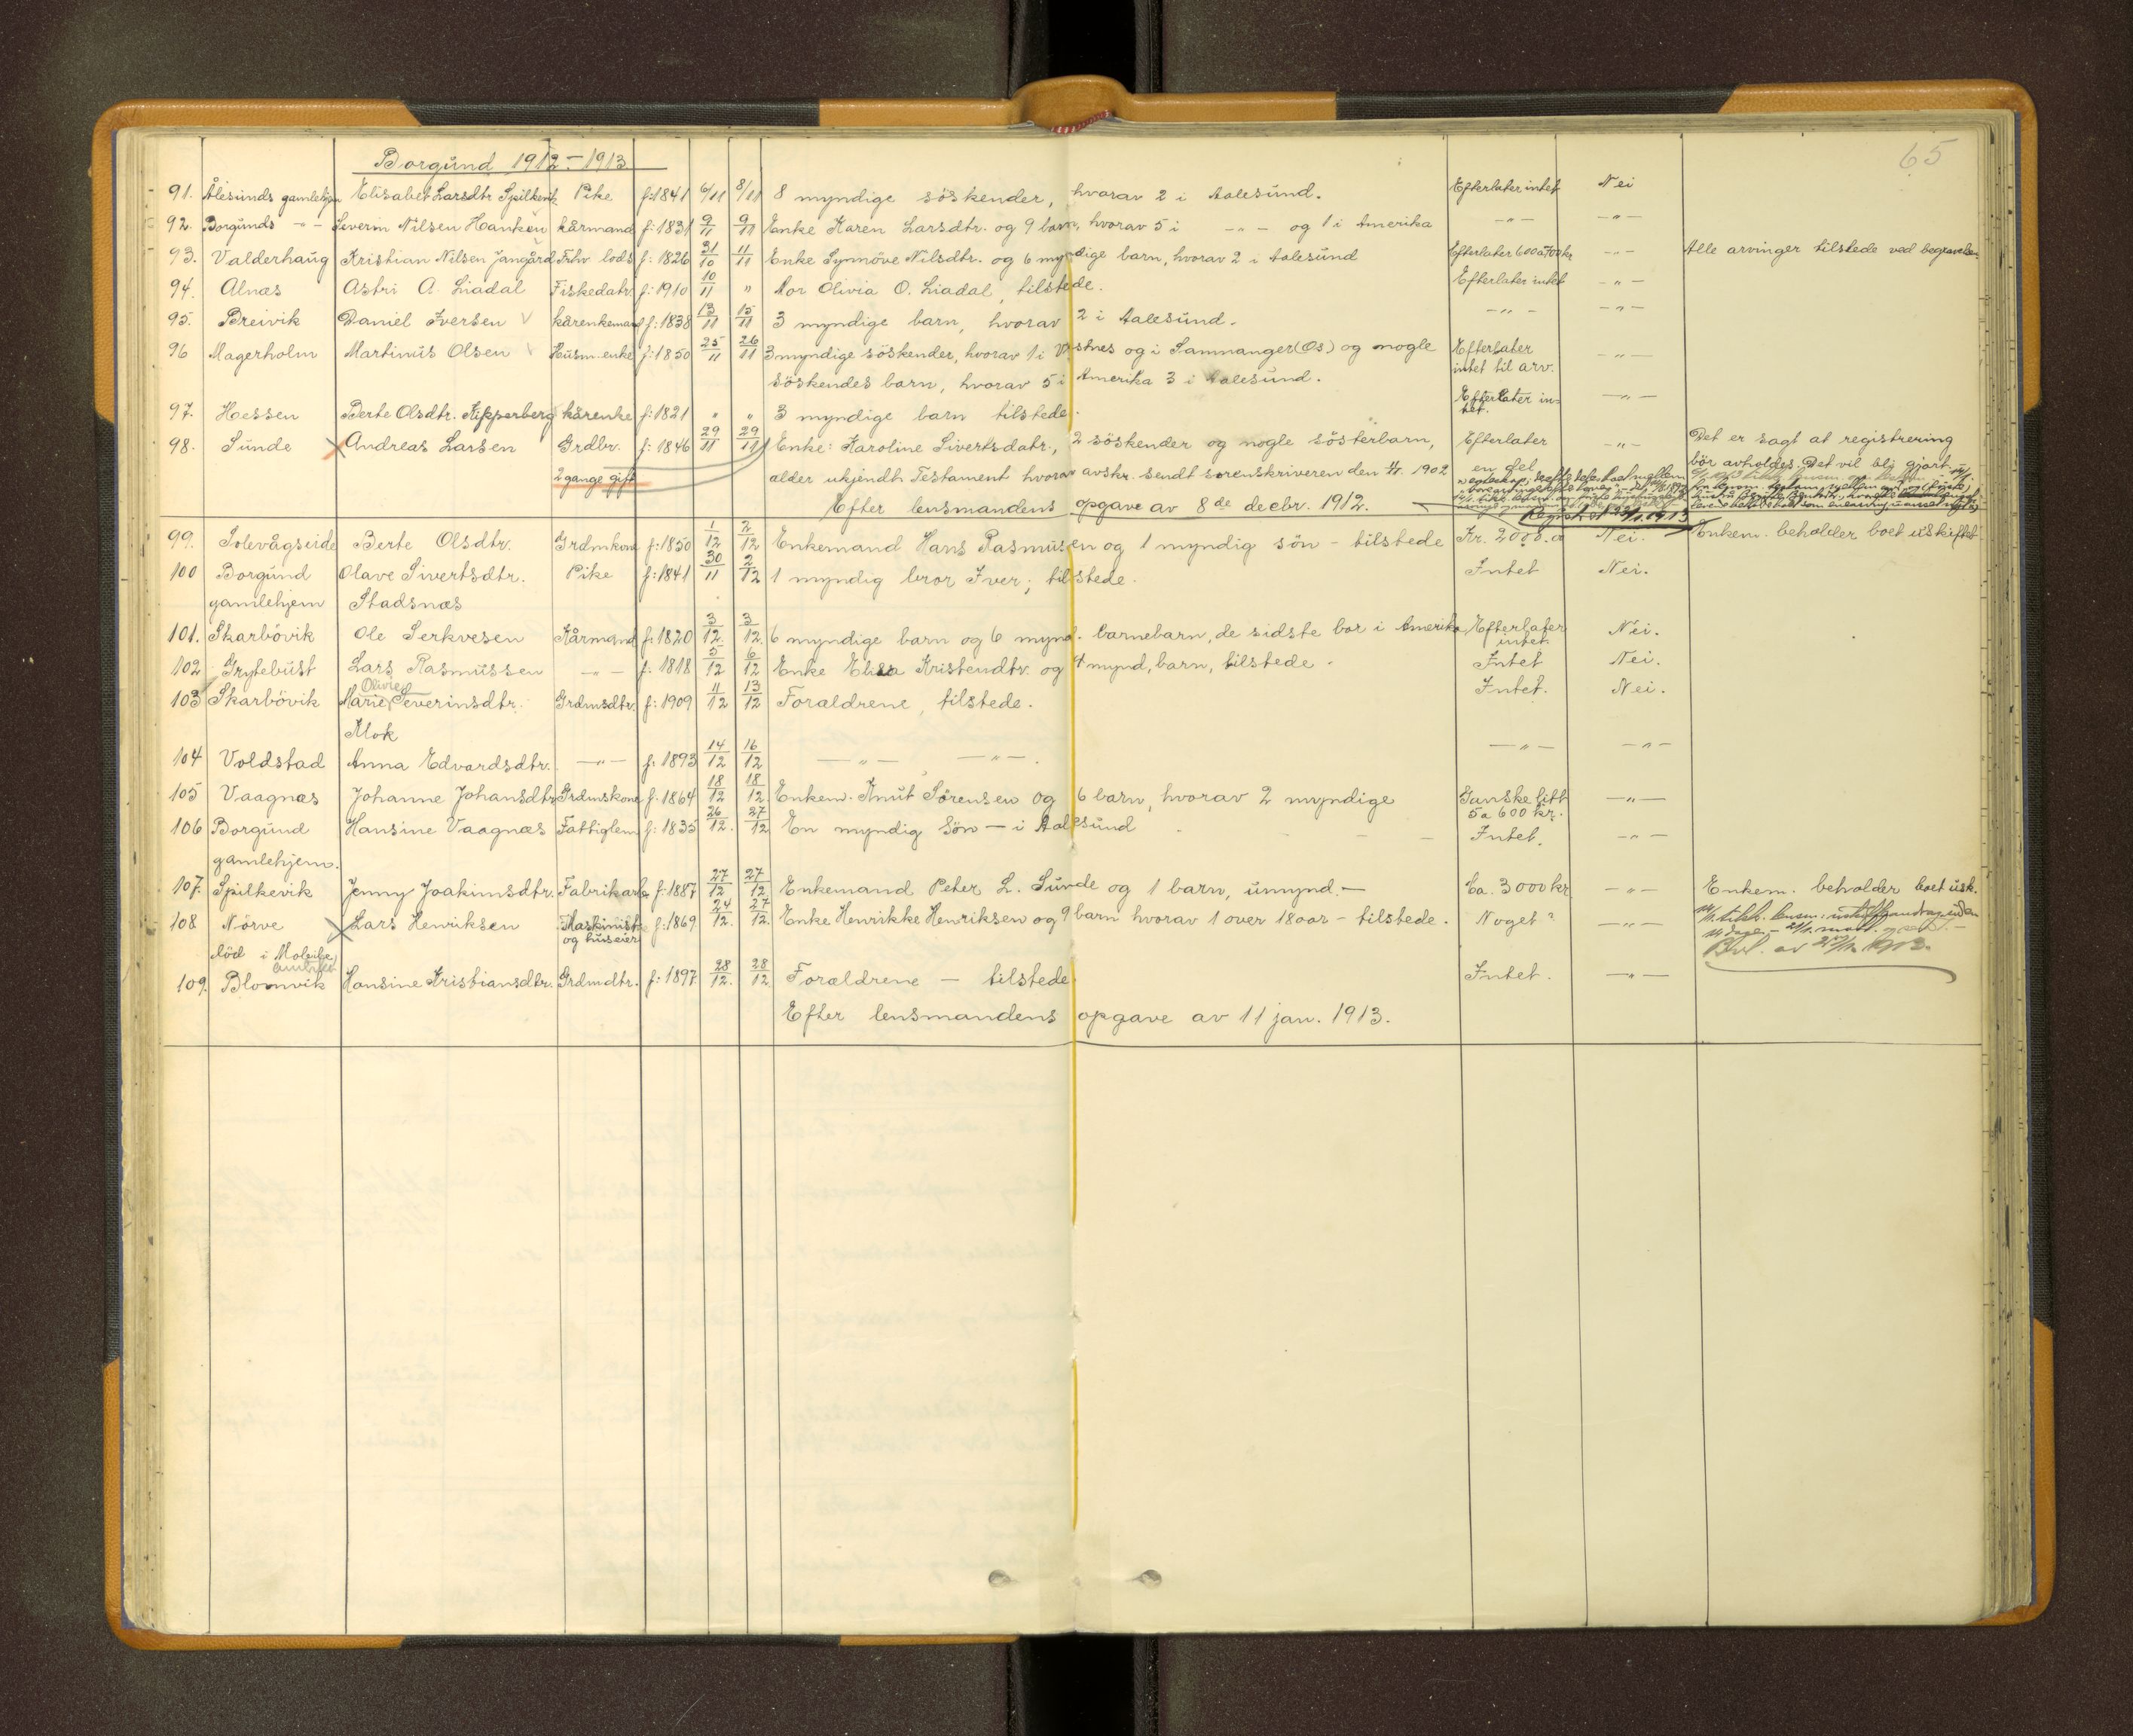 65
Borgund 1912-1913
91. Ålesunds gamlehjem Elisabet Larsdtr Spilkevik Pike f: 1841 6/11 8/11 8 myndige söskender, hvorav 2 i Aalesund. Efterlater intet Nei
92. Borgunds -"- Severin Nilsen Hanken kårmand f: 1831 9/11 9/11 Enke Karen Larsdtr. og 9 barn, hvorav 5 i -"- og 1 i Amerika -"- -"-
93. Valderhaug Kristian Nilsen Jangård Fhv lods f: 1826 31/10 11/11 Enke Synnöve Nilsdtr. og 6 myndige barn, hvorav 2 i Aalesund Efterlater 600 a 700 kr -"- Alle arvinger tilstede ved begravelsen.
94. Alnæs Astri O. Liadal Fiskedatr. f: 1910 10/11 " Mor Olivia O. Liadal, tilstede. Efterlater intet -"-
95. Breivik Daniel Iversen kårenkemand f: 1838 13/11 15/11 3 myndige barn, hvorav 2 i Aalesund. -"- -"-
96 Magerholm Martinus Olsen Husm. enke f: 1850 25/11 26/11 3 myndige söskender, hvorav 1 i Vestnes og i Samnanger (Os) og nogle Efterlater -"-
söskendes barn, hvorav 5 i Amerika 3 i Aalesund. intet til arv.
97. Hessen Berte Olsdtr. Nipperberg kårenke f: 1821 " " 3 myndige barn tilstede. Efterlater intet. -"-
98. Sunde Andreas Larsen Grdbr. f: 1846 29/11 29/11 Enke: Karoline Sivertsdatr., 2 söskender og nogle sösterbarn, Efterlater -"- Det er sagt at registrering
2 gange gift alder ukjendt. Testament hvorav avskr. sendt sorenskriveren den 4/1. 1902 en del bör avholdes. Det vil bli gjort.
Efter lensmandens opgave av 8de decbr. 1912.
99. Solevågseide Berte Olsdtr. Grdmkone f: 1850 1/12 2/12 Enkemand Hans Rasmussen og 1 myndig sön - tilstede Kr. 2000.00 Nei. Enkem. beholder boet uskiftet.
100 Borgund Olave Sivertsdtr. Pike f: 1841 30/11 2/12 1 myndig bror Iver; tilstede. Intet Nei.
gamlehjem Stadsnæs
101. Skarbövik Ole Serkvesen Kårmand f: 1820 3/12. 3/12. 6 myndige barn og 6 mynd. barnebarn, de sidste bor i Amerika Efterlater intet. Nei.
102 Grytebust Lars Rasmussen -"- f: 1818 5/12 6/12 Enke Elisa Kristendtr. og 4 mynd, barn, tilstede. Intet Nei.
Olivie
103 Skarbövik Marie Severinsdtr. Grdmsdtr. f: 1909 11/12 13/12 Forældrene, tilstede. Intet. Nei.
Mok
104 Voldstad Anna Edvardsdtr. -"- f: 1893 14/12 16/12 -"- -"-. -"- -"-
105 Vaagnæs Johanne Johansdtr Grdmskone f: 1864 18/12 18/12. Enkem. Knut Sörensen og 6 barn, hvorav 2 myndige Ganske litt -"-
5 a 600 kr.
106 Borgund Hansine Vaagnæs Fattiglem f: 1835 26/12. 27/12 En myndig Sön - i Aalesund Intet. -"-
gamlehjem.
107. Spilkevik Jenny Joakimsdtr. Fabrikarb f: 1887 27/12 27/12 Enkemand Peter L. Sunde og 1 barn, umynd. - Ca. 3000 kr -"- Enkem. beholder boet usk.
108 Nörve Lars Henriksen Maskinist f: 1869 24/12. 27/12. Enke Henrikke Henriksen og 9 barn hvorav 1 over 18 aar - tilstede. Noget? -"-
og huseier
död i Molde
109. Blomvik Hansine Kristiansdtr. Grdmdtr. f: 1897 28/12. 28/12 Forældrene - tilstede Intet. -"-
Efter lensmandens opgave av 11 jan. 1913.